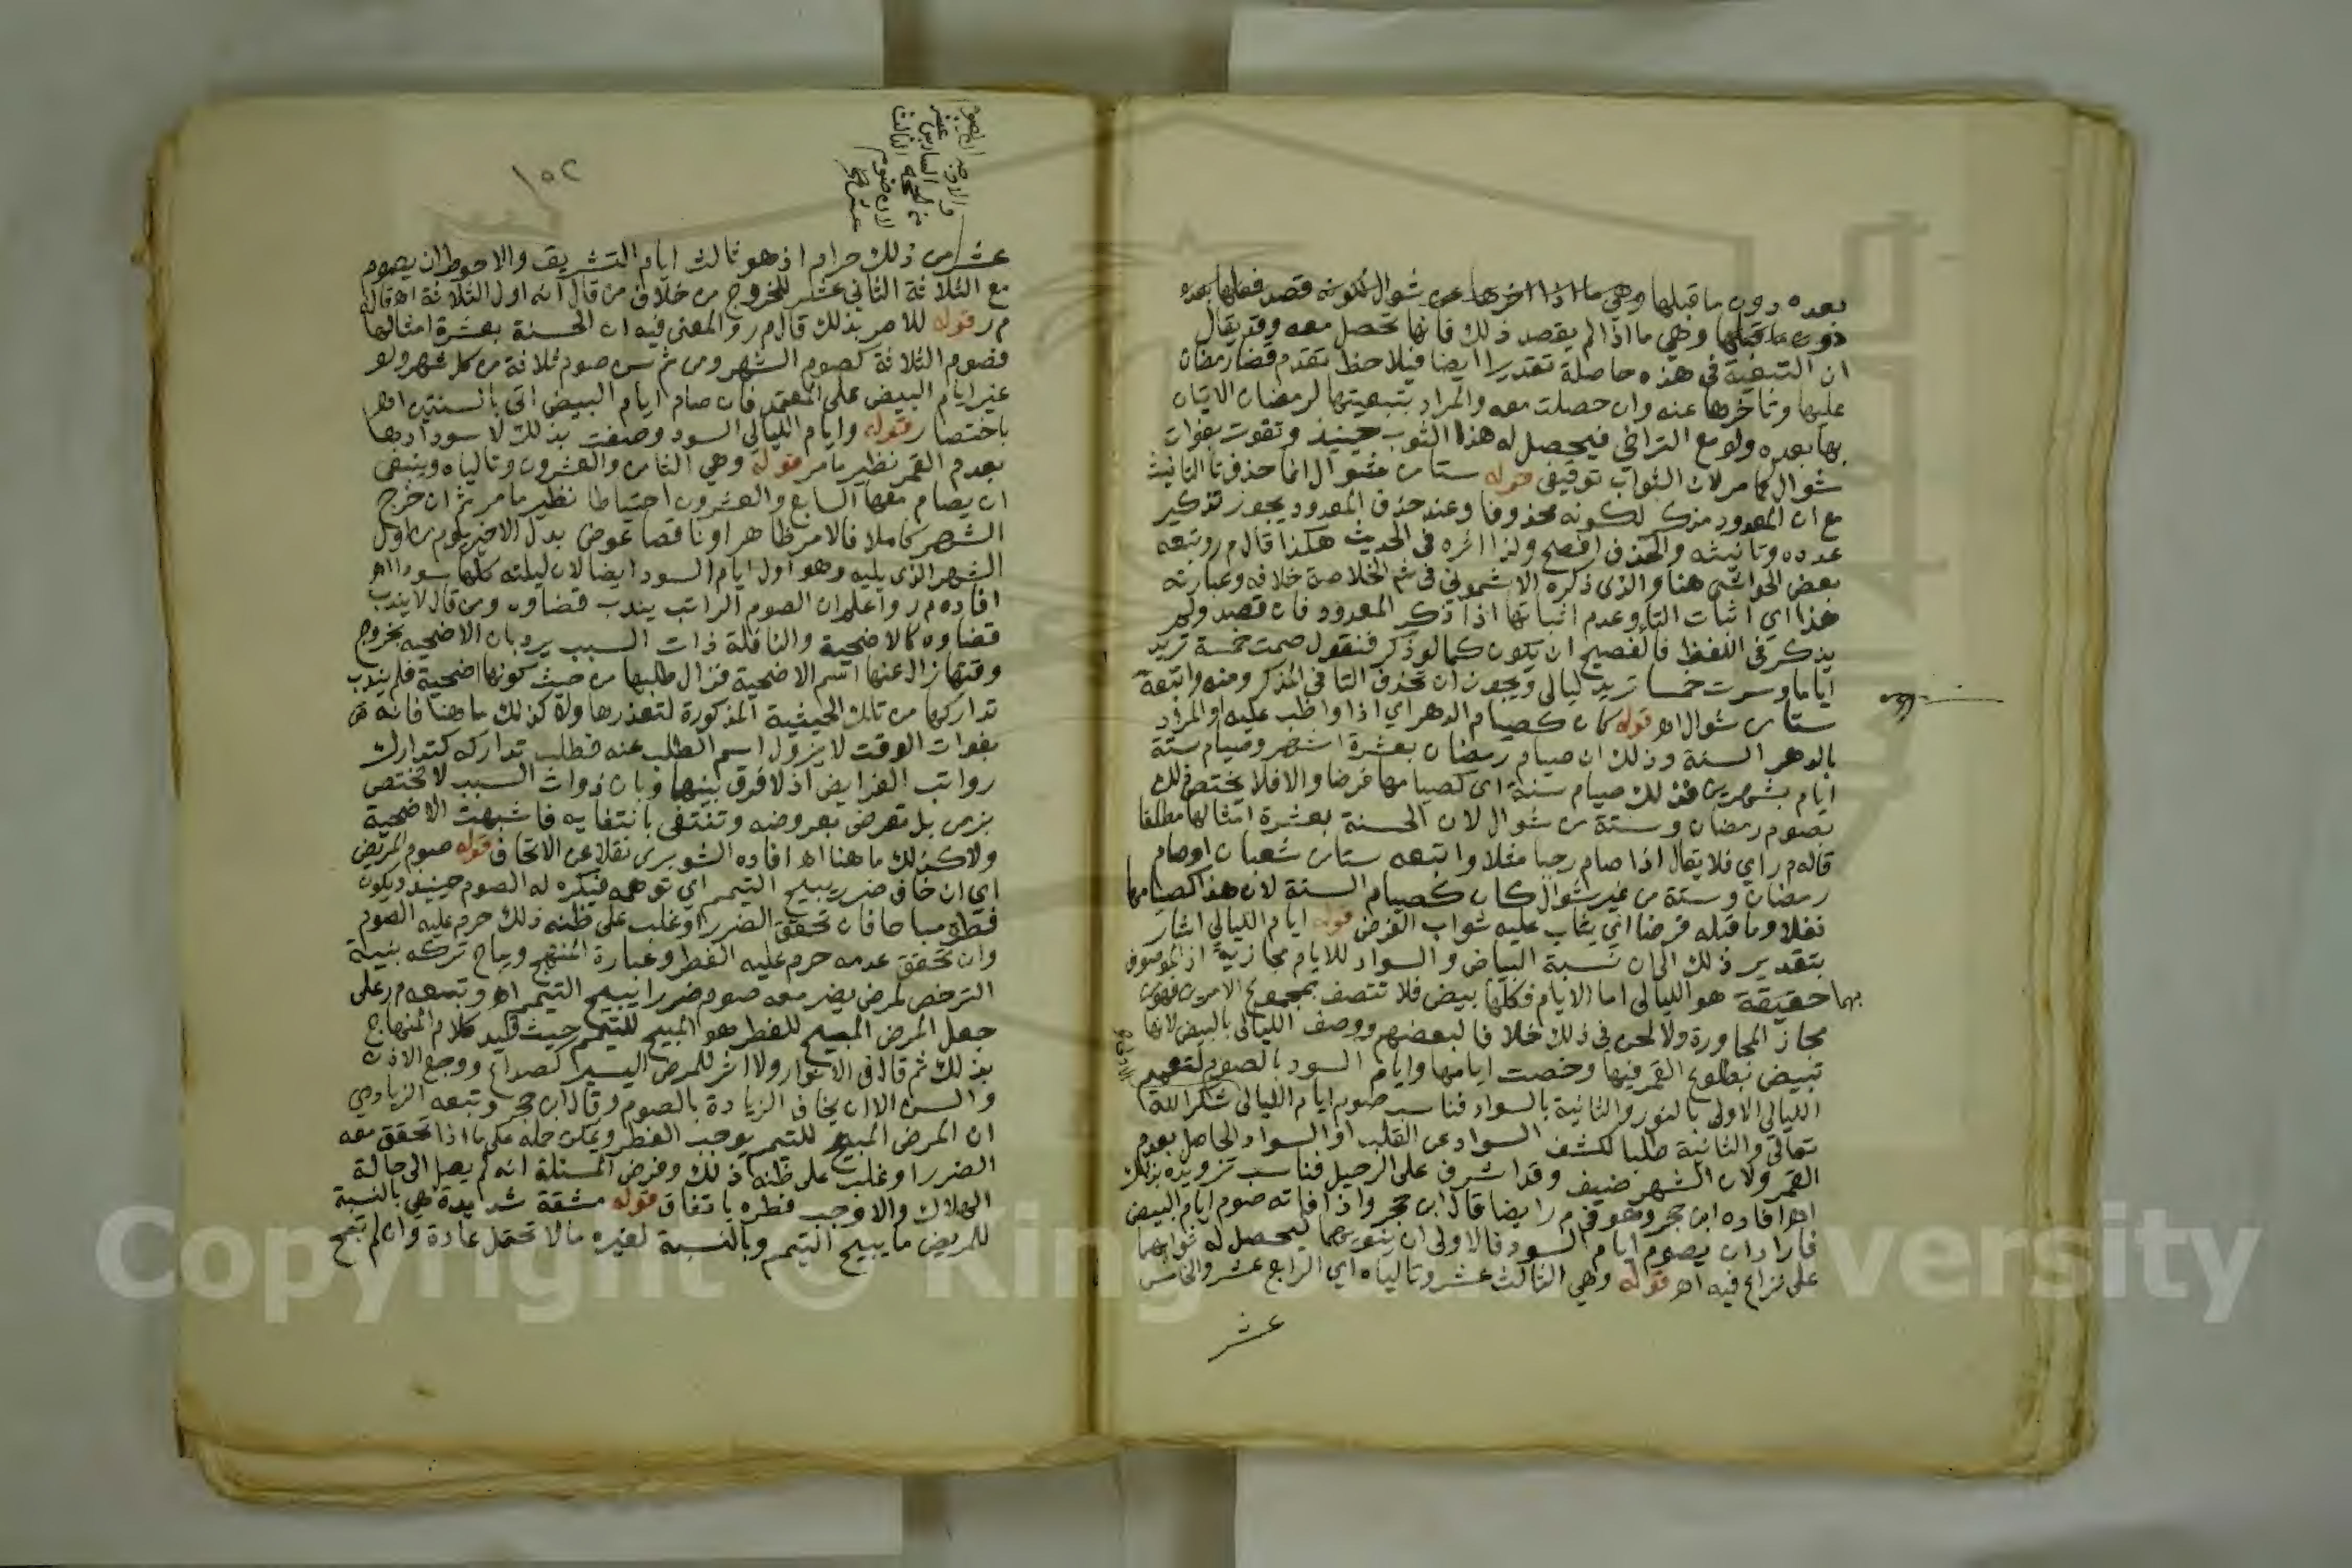 بعده دون ما قبلها وهي ما اذا اخرها عن شوال لكونه قصد فعلها بعده
دون ما قبلها وهي ما اذا لم يقصد ذلك فانها تحصل معه وقد يقال
ان التبعية في هذه حاصلة تقديرا ايضا فيلاحظ تقدم قضا رمضان
عليها وتاخرها عنه وان حصلت معه والمراد بتبعيتها لرمضان الاتيان
بها بعده ولو مع التراخي فيحصل له هذا الثوب حينيذ وتفوت بفوات
شوال كما مر لان الثواب توقيفى قوله ستا من شوال انما حذف تا التانيث
مع ان المعدود مذكر لكونه محذوفا وعند حذف المعدود يجوز تذكير
عدده وتانيثه والحذف افصح ولذا اثره فى الحديث هكذا قال م ر وتبعه
بعض الحواشى هنا والذى ذكره الاشمونى فى شم الخلاصة خلافه وعبارته
هذا اى اثبات التا وعدم اثباتها اذا ذكر المعدود فان قصد ولم
يذكر فى اللفظ فالفصيح ان يكون كما لو ذكر فتقول صمت خمسة تريد
اياما وسرت خمسا تريد ليالى ويجوز ان تحذف التا فى المذكر ومنه واتبعه
ستا من شوال اهـ قوله كان كصيام الدهر اي اذا واظب عليه والمراد
بالدهر السنة وذلك ان صيام رمضان بعشرة اشهر وصيام ستة
ايام بشهرين فذلك صيام سنة اى كصيامها فرضا والا فلا يختص ذلك
بصوم رمضان وستة من شوال لان الحسنة بعشرة امثالها مطلقا
قاله م ر اي فلا يقال اذا صام رجبا مثلا واتبعه ستا من شعبان او صام
رمضان وستة من غير شوال كان كصيام السنة لان هذا كصيامها
نفلا وما قبله فرضا اى يثاب عليه ثواب الفرض قوله ايام الليالي اشار
بتقدير ذلك الى ان نسبة البياض والسواد للايام مجازية اذ الموصوف
بهما حقيقة هو الليالى اما الايام فكلها بيض فلا تتصف بمجموع الامرين فهو من
مجاز المجاورة ولا لحن فى ذلك خلافا لبعضهم ووصف الليالى بالبيض لانها
تبيض بطلوع القمر فيها وخصت ايامها وايام السود بالصوم لتعميم
الليالى الاولى بالنور والثانية بالسواد فناسب صوم ايام الليالى شكرا لله
تعالى والثانية طلبا لكشف السواد عن القلب او السواد الحاصل بعدم
القمر ولان الشهر ضيف وقد اشرف على الرحيل فناسب تزويده بذلك
اهـ افاده ابن حجر وهو فى م ر ايضا قال ابن حجر واذا فاته صوم ايام البيض
فاراد ان يصوم ايام السود فالاولى ان ينويهما ليحصل له ثوابهما
على نزاع فيه اهـ قوله وهي الثالث عشر وتالياه اي الرابع عشر والخامس
عشر
١٥٢
والاوجه الصوم
السادس عشر
من الحجة
لان صوم الثالث
عشر
عشر من ذلك حرام اذ هو ثالث ايام التشريق والاحوط ان يصوم
مع الثلاثة الثاني عشر للخروج من خلاف من قال انه اول الثلاثة اهـ قاله
م ر قوله للامر بذلك قال م ر والمعنى فيه ان الحسنة بعشرة امثالها
فصوم الثلاثة كصوم الشهر ومن ثم سن صوم ثلاثة من كل شهر ولو
غير ايام البيض على المعتمد فان صام ايام البيض اتى بالسنتين اهـ
باختصار قوله وايام الليالي السود وصفت بذلك لاسودادها
بعدم القمر نظير ما مر قوله وهي الثامن والعشرون وتالياه وينبغى
ان يصام معها السابع والعشرون احتياطا نظير ما مر ثم ان خرج
الشهر كاملا فالامر ظاهر او ناقصا عوض بدل الاخير يوم من اول
الشهر الذى يليه وهو اول ايام السود ايضا لان ليلته كلها سودا اهـ
افاده م ر واعلم ان الصوم الراتب يندب قضاوه ومن قال لا يندب
قضاوه كالاضحية والنافلة ذات السبب يرد بان الاضحية بخروج
وقتها زال عنها اسم الاضحية فزال طلبها من حيث كونها اضحية فلم يندب
تداركها من تلك الحيثية المذكورة لتعذرها ولا كذلك ما هنا فانه
بفوات الوقت لا يزول اسم الطلب عنه فطلب تداركه كتدارك
رواتب الفرايض اذ لا فرق بينهما وبان ذوات السبب لا تختص
بزمن بل تعرض بعروضه وتنتفى بانتفايه فاشبهت الاضحية
ولا كذلك ما هنا اهـ افاده الشوبرى نقلا عن الاتحاف قوله صوم المريض
اي ان خاف ضرر يبيح التيمم اي توهمه فيكره له الصوم حينيذ ويكون
فطره مباحا فان تحقق الضرر او غلب على ظنه ذلك حرم عليه الصوم
وان تحقق عدمه حرم عليه الفطر وعبارة المنهج ويباح تركه بنية
الترخص لمرض يضر معه صوم ضررا يبيح التيمم اهـ وتبعه م ر على
جعل المرض المبيح للفطر هو المبيح للتيمم حيث قيد كلام المنهاج
بذلك ثم قال فى الانوار ولا اثر للمرض اليسير كصداع ووجع الاذن
والسن الا ان يخاف الزيادة بالصوم وقال ابن حجر وتبعه الزيادي
ان المرض المبيح للتيمم يوجب الفطر ويمكن حمله على ما اذا تحقق معه
الضرر او غلب على ظنه ذلك وفرض المسئلة انه لم يصل الى حالة
الهلاك والا وجب فطره باتفاق قوله مشقة شديدة هي بالنسبة
للمريض ما يبيح التيمم وبالنسبة لغيره ما لا تحتمل عادة وان لم تبح
Copyright © King Saud University